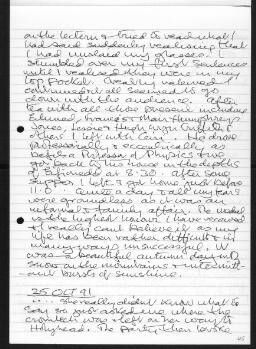 on the lectern & tried to read what I
had said suddenly realising that
I had mislaid my glasses. I
stumbled over my first sentences
until I realised they were in my
top pocket. Dearly relieved I
continued & all seemed to go
down with the audience. After
tea with all those present including
Edmund, Frances & Huw, Humphreys
Jones,
others I left with Cain. He drove
professorially & eccentrically as
befits a Professor of Physics and
got back to his home in the depths
of Eifionedd at 8.30. After some
supper I left & got home just before
11.0. Quite a day & all
were groundless as it was an
informal & family affair. The medal
is the highest honour I have received
& I really can't believe it as my
life has been rather difficult & in
many ways unsuccessful. It
was a beautiful autumn day with
snow on the mountains & intermitt-
-ent bursts of sunshine.
25 OCT 91
.... She really didn't know what to
say so just asked me where the
was & left on her way to
Holyhead. The party then broke
45